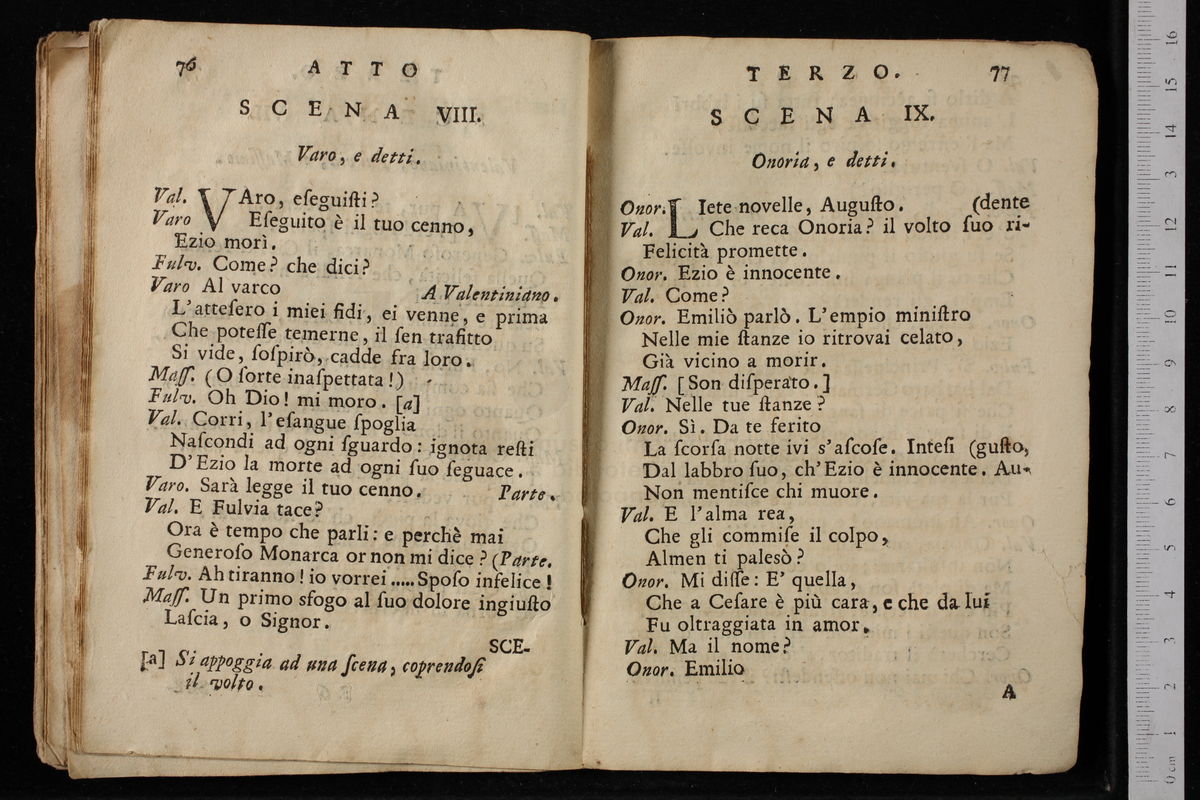 76 ATTO
SCENA VIII.
Varo, e detti.
Val. VAro, eſeguiſti?
Varo Eſeguito è il tuo cenno,
Ezio morì.
Fulv. Come? che dici?
Varo Al varco A Valentiniano.
L'atteſero i miei fidi, ei venne, e prima
Che poteſſe temerne, il ſen trafitto
Si vide, ſoſpirò, cadde fra loro.
Maſſ. (O ſorte inaſpettata!)
Fulv. Oh Dio! mi moro. [a]
Val. Corri, l'eſangue ſpoglia
Naſcondi ad ogni ſguardo: ignota reſti
D'Ezio la morte ad ogni ſuo ſeguace.
Varo. Sarà legge il tuo cenno. Parte.
Val. E Fulvia tace?
Ora è tempo che parli: e perchè mai
Generoſo Monarca or non mi dice? (Parte.
Fulv. Ah tiranno! io vorrei ..... Spoſo infelice!
Maſſ. Un primo sfogo al ſuo dolore ingiuſto
Laſcia, o Signor.
SCE-
[a] Si appoggia ad una ſcena, coprendoſi
il volto.
TERZO. 77
SCENA IX.
Onoria, e detti.
Onor. LIete novelle, Auguſto. (dente
Val. Che reca Onoria? il volto ſuo ri-
Felicità promette.
Onor. Ezio è innocente.
Val. Come?
Onor. Emiliò parlò. L'empio miniſtro
Nelle mie ſtanze io ritrovai celato,
Già vicino a morir.
Maſſ. [Son diſperato.]
Val. Nelle tue ſtanze?
Onor. Sì. Da te ferito
La ſcorſa notte ivi s'aſcoſe. Inteſi (guſto,
Dal labbro ſuo, ch'Ezio è innocente. Au-
Non mentiſce chi muore.
Val. E l'alma rea,
Che gli commiſe il colpo,
Almen ti palesò?
Onor. Mi diſſe: E' quella,
Che a Ceſare è più cara, e che da lui
Fu oltraggiata in amor.
Val. Ma il nome?
Onor. Emilio
A